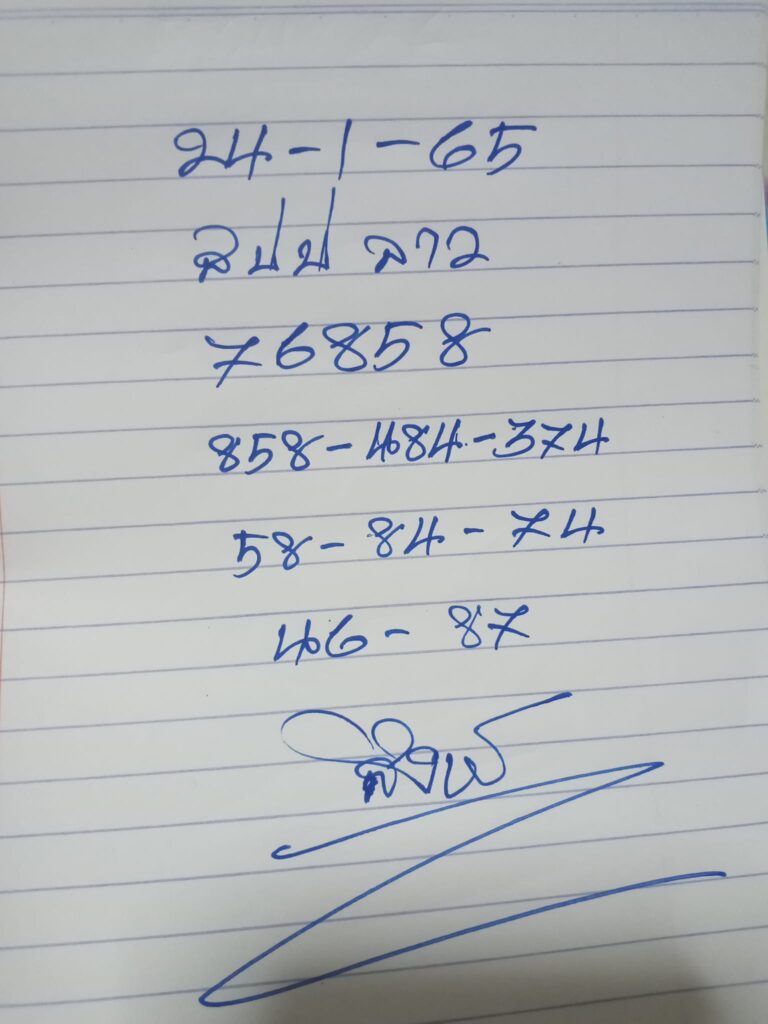 24-1-65
สปป ลาว
76858
858-484-374
58-84-74
46-87